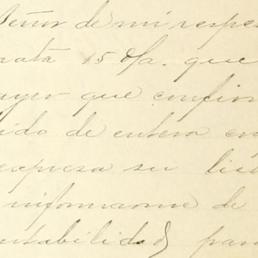 Señor de mi respe
rata 15 d/a. que
ayer que confir
ido de entera con
expresa su lis
informarme de
ntabilidad, para